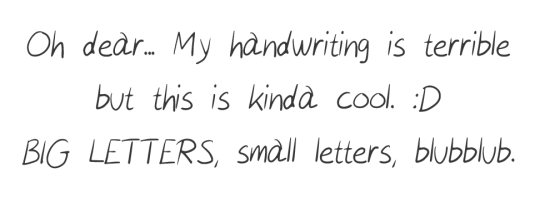 Oh dear... My handwriting is terrible
but this is kinda cool. :D
BIG LETTERS, small letters, blubblub.